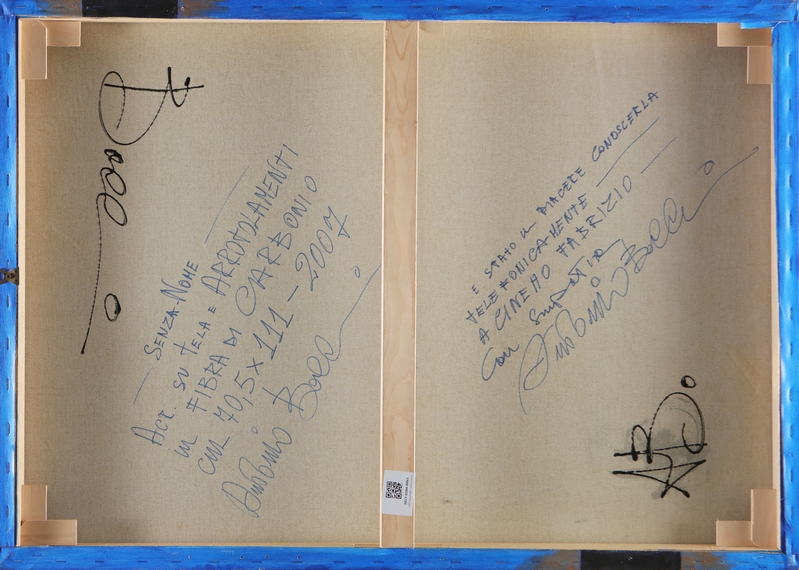 Bocci
— SENZA NOME —
ACR. SU TELA E ARROTOLAMENTI
IN FIBRA DI CARBONIO
CM 70,5 X 111 - 2007
Antonio Bocci
È STATO UN PIACERE CONOSCERLA
TELEFONICAMENTE —
A CINEHO FABRIZIO —
Con Simpatia
Antonio Bocci
AB